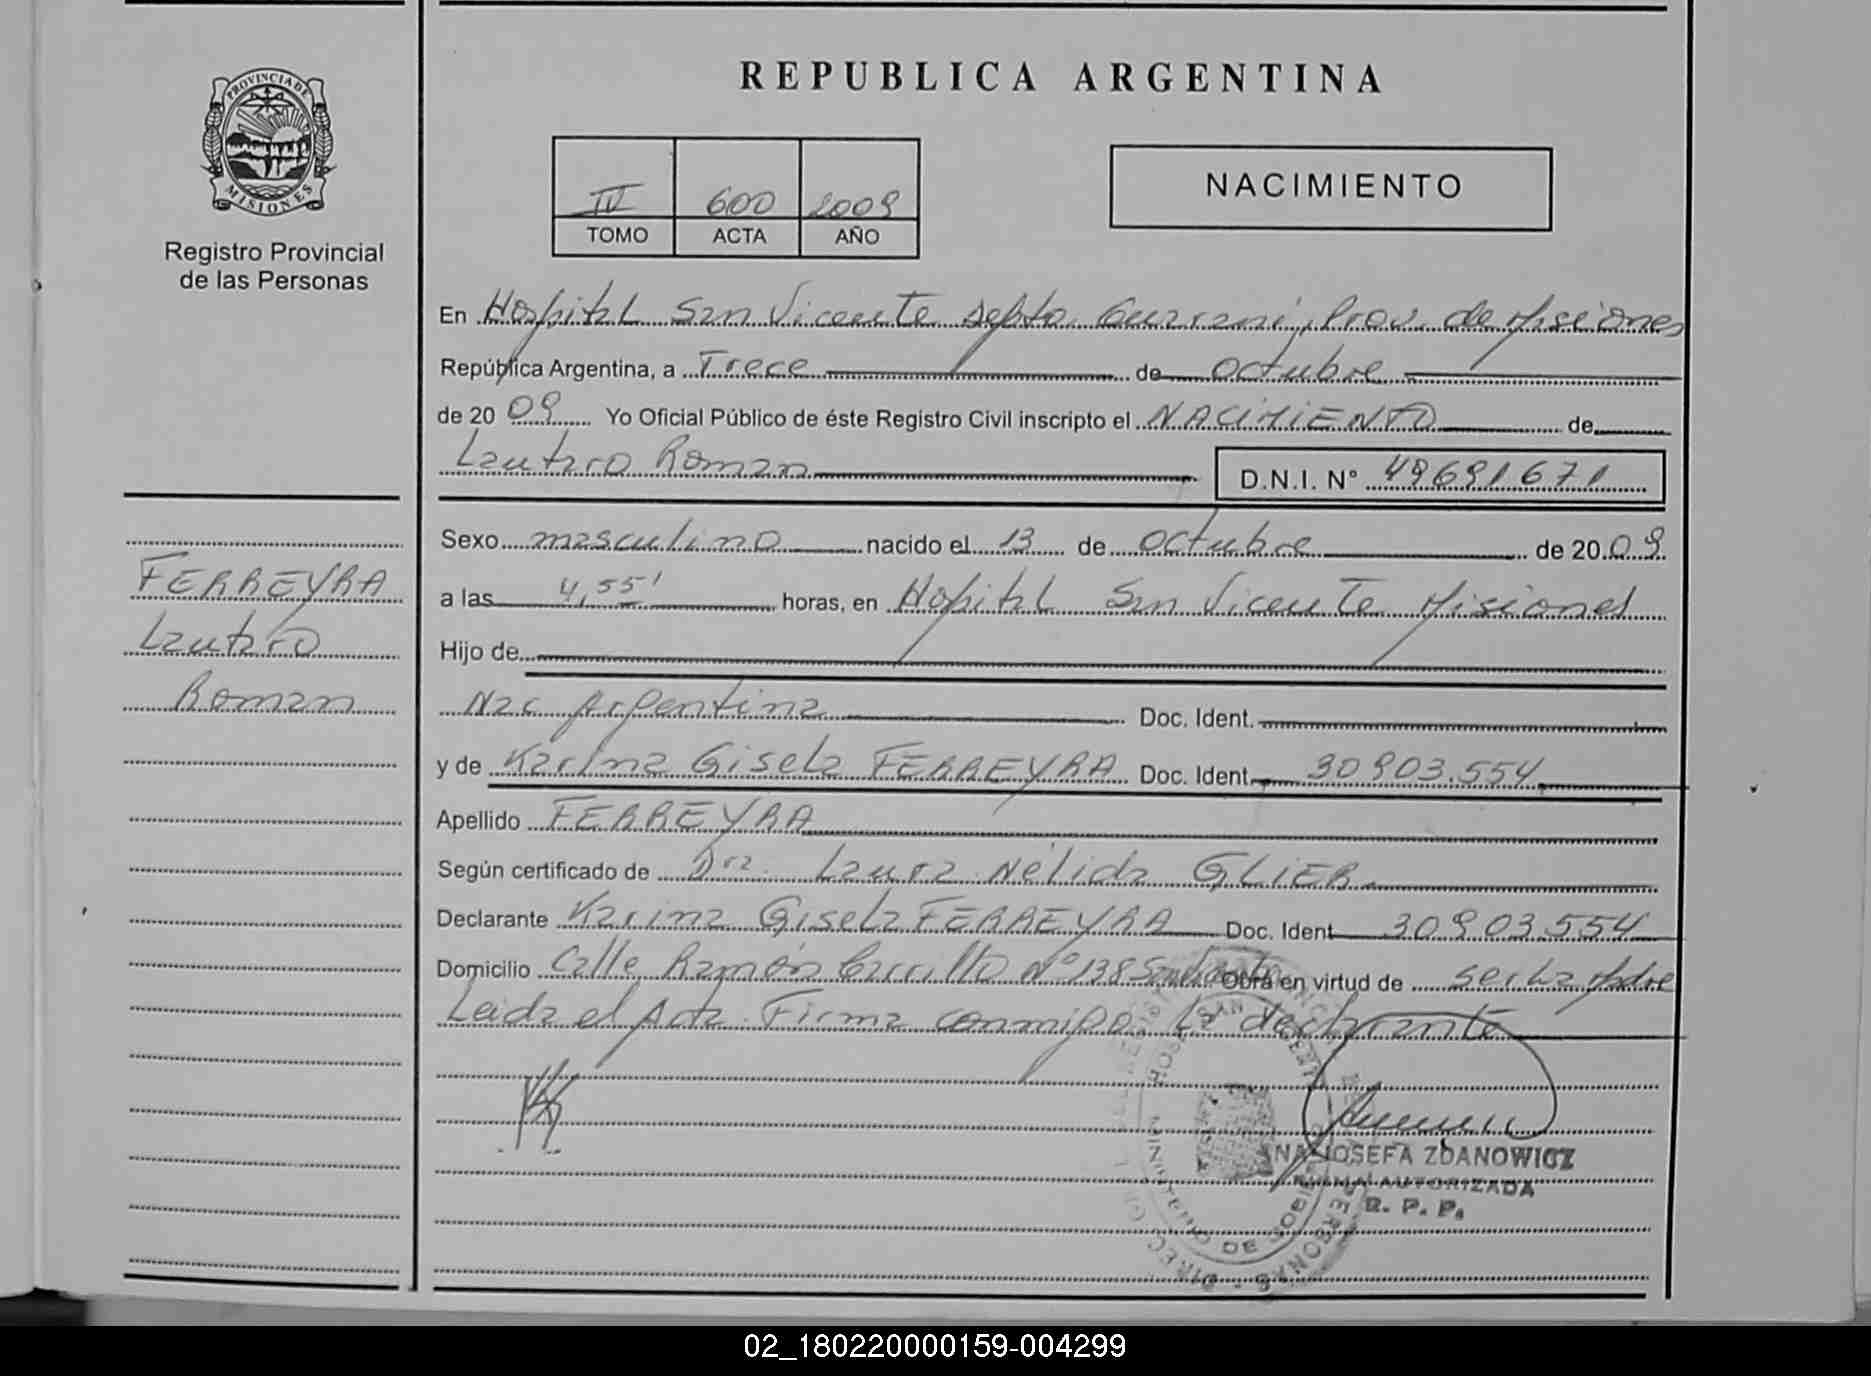 REPUBLICA ARGENTINA
PROVINCIA DE
MISIONES
Registro Provincial
de las Personas
IV 600 2009
TOMO ACTA AÑO
NACIMIENTO
En Hospital San Vicente Depto. Guarani, Prov. de Misiones
República Argentina, a Trece de octubre
de 20 09 Yo Oficial Público de éste Registro Civil inscripto el NACIMIENTO de
Lautaro Roman D.N.I. N° 49691671
Sexo masculino nacido el 13 de octubre de 20 09
a las 4,55' horas, en Hospital San Vicente Misiones
Hijo de
Nac Argentina Doc. Ident.
y de Karina Gisela FERREYRA Doc. Ident. 30903.554
Apellido FERREYRA
Según certificado de Dra. Laura Nélida GLIER.
Declarante Karina Gisela FERREYRA Doc. Ident 30903.554
Domicilio Calle Ramón Carrillo N° 138 San Vicente Obra en virtud de ser La Madre
Leida el Acta. Firma conmigo la declarante
FERREYRA
Lautaro
Roman
JOSEFA ZDANOWICZ
FIRMA AUTORIZADA
R. P. P.
02_180220000159-004299